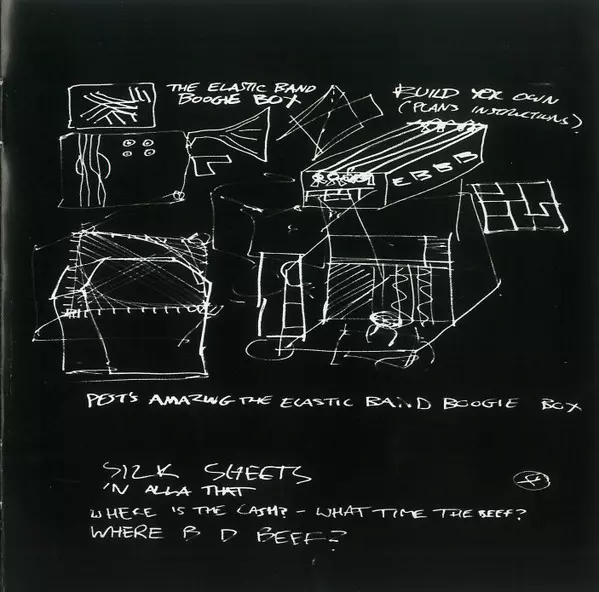 THE ELASTIC BAND
BOOGIE BOX
BUILD YER OWN
(PLANS INSTRUCTIONS)
EBBB
PEST'S AMAZING THE ELASTIC BAND BOOGIE BOX
SILK SHEETS
'N ALLA THAT
WHERE IS THE CASH? - WHAT TIME THE BEEF?
WHERE B D BEEF?